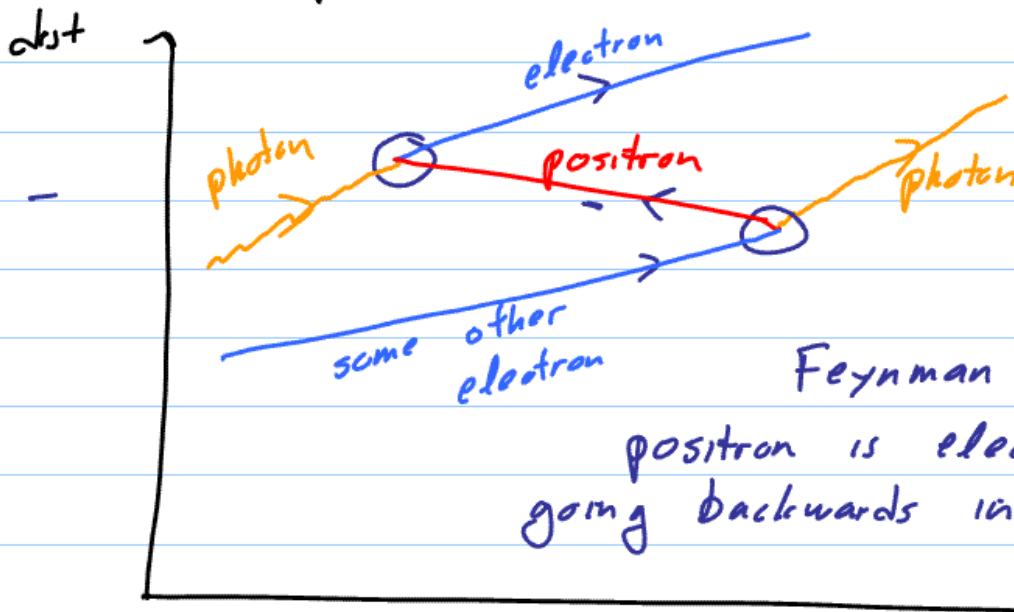 dst
electron
photon
positron
photon
some other
electron
Feynman
positron is elec
going backwards in